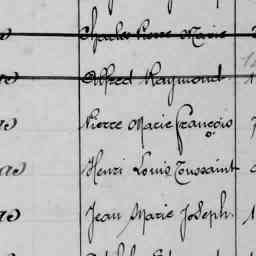 Charles Pierre Marie
Alfred Raymond
Pierre Marie François
Henri Louis Toussaint
Jean Marie Joseph